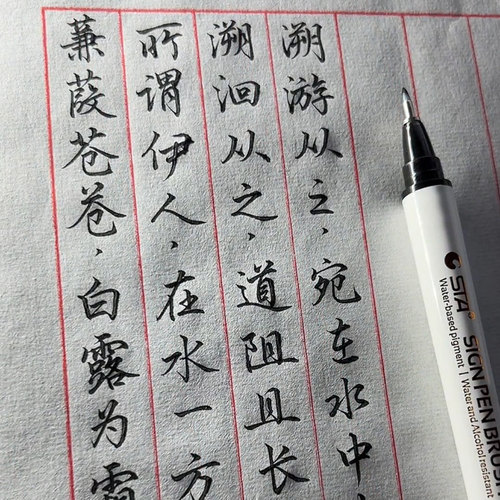 蒹葭苍苍，白露为霜
所谓伊人，在水一方
溯洄从之，道阻且长
溯游从之，宛在水中
STA® SIGN PEN BRUS
Water-based pigment | Water and Alcohol resistant